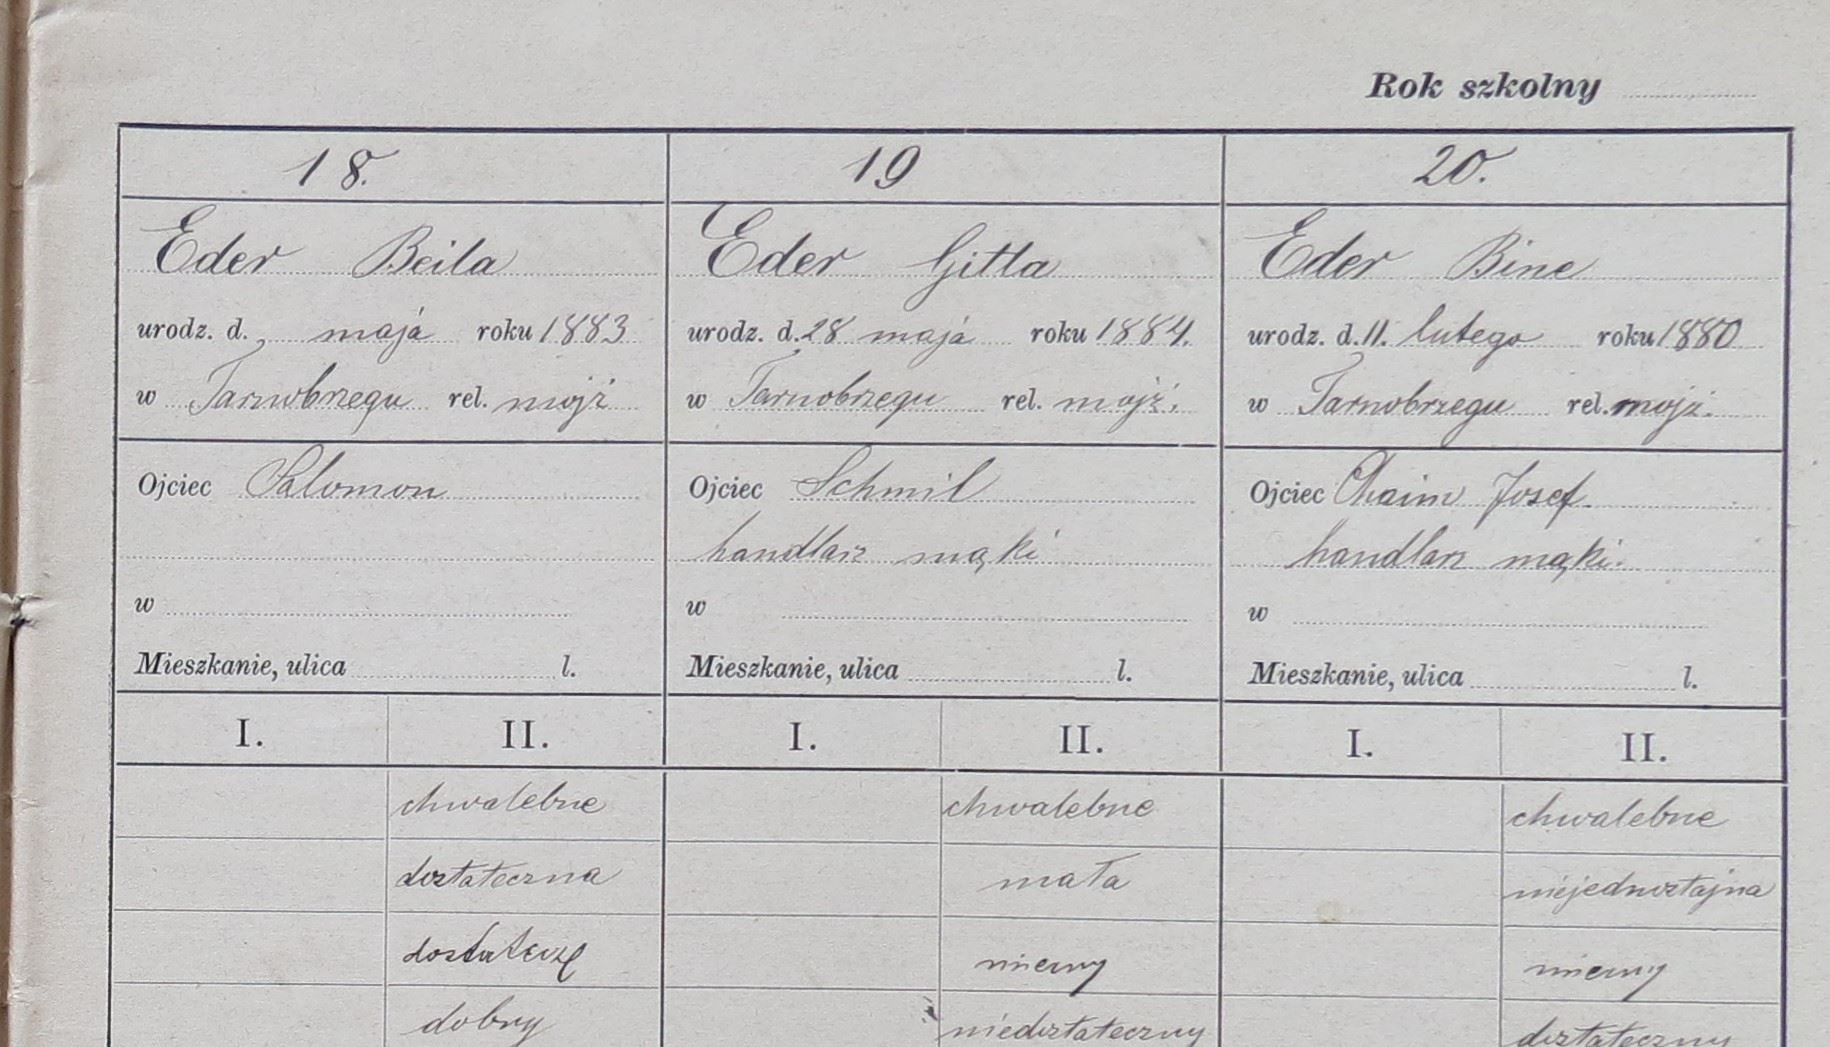 Rok szkolny
18.
Eder Beila
urodz. d. maja roku 1883
w Tarnobrzegu rel. mojż
Ojciec Salomon
w
Mieszkanie, ulica l.
I. II.
chwalebne
dostateczna
dobry
19
Eder Gitla
urodz. d. 28 maja roku 1884.
w Tarnobrzegu rel. mojż.
Ojciec Schmil
handlarz mąki
w
Mieszkanie, ulica l.
I. II.
chwalebne
mała
mierny
niedostateczny
20.
Eder Bine
urodz. d. 11. lutego roku 1880
w Tarnobrzegu rel. mojż.
Ojciec Chaim Josef.
handlarz mąki.
w
Mieszkanie, ulica l.
I. II.
chwalebne
niejednostajna
mierny
dostateczny